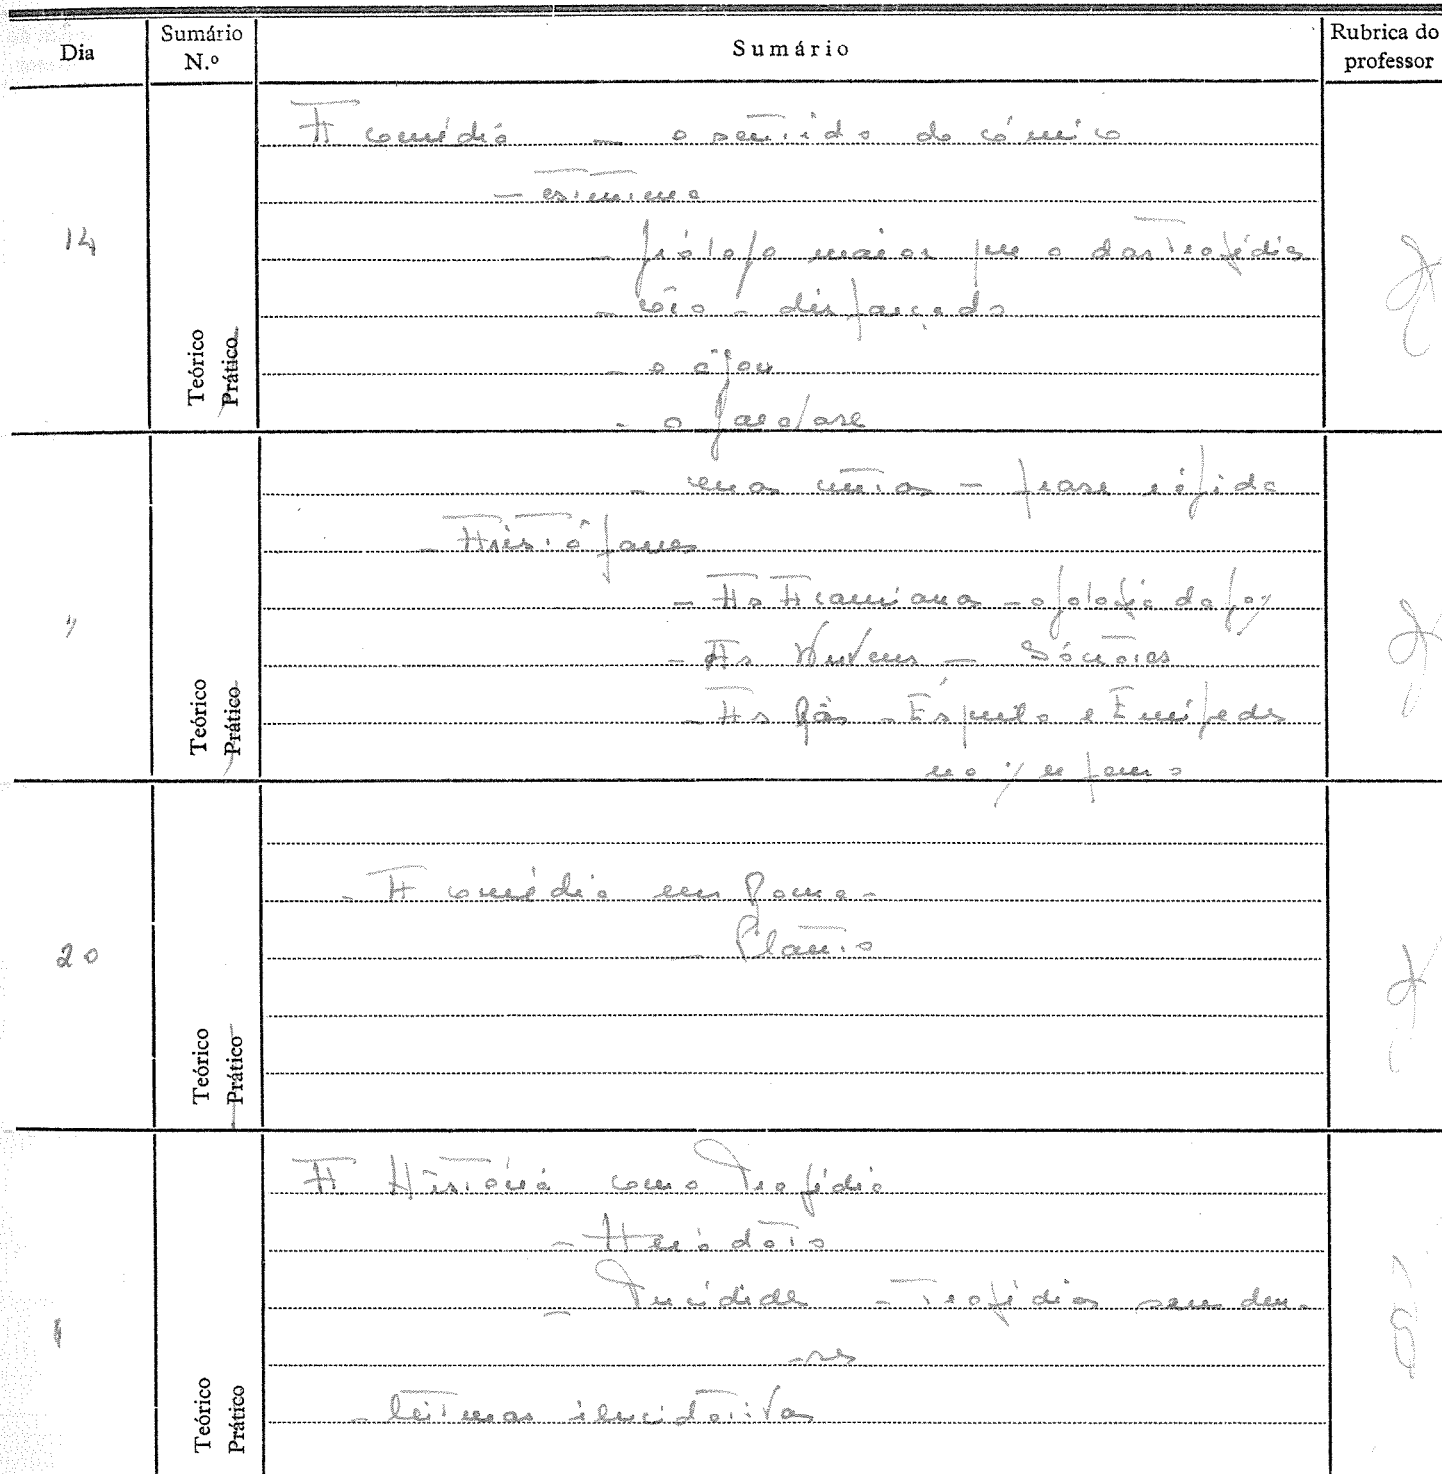 Dia Sumário N.º Sumário Rubrica do professor
14
Teórico Prático
A comédia – o sentido do cómico
– estrutura
– prólogo maior que o das tragédias
– côro – disfarçado
– o ágon
– o parábase
"
Teórico Prático
– frase rígida
– Aristófanes
– As Acarnianas – apologia da paz
– As Nuvens – Sócrates
– As Rãs – Ésquilo e Eurípedes
no inferno
20
Teórico Prático
– A comédia em Roma –
– Plauto
Teórico Prático
A História como Tragédia
– Heródoto
– Tucídides – Tragédias sem deu-
-ses
– leituras elucidativas